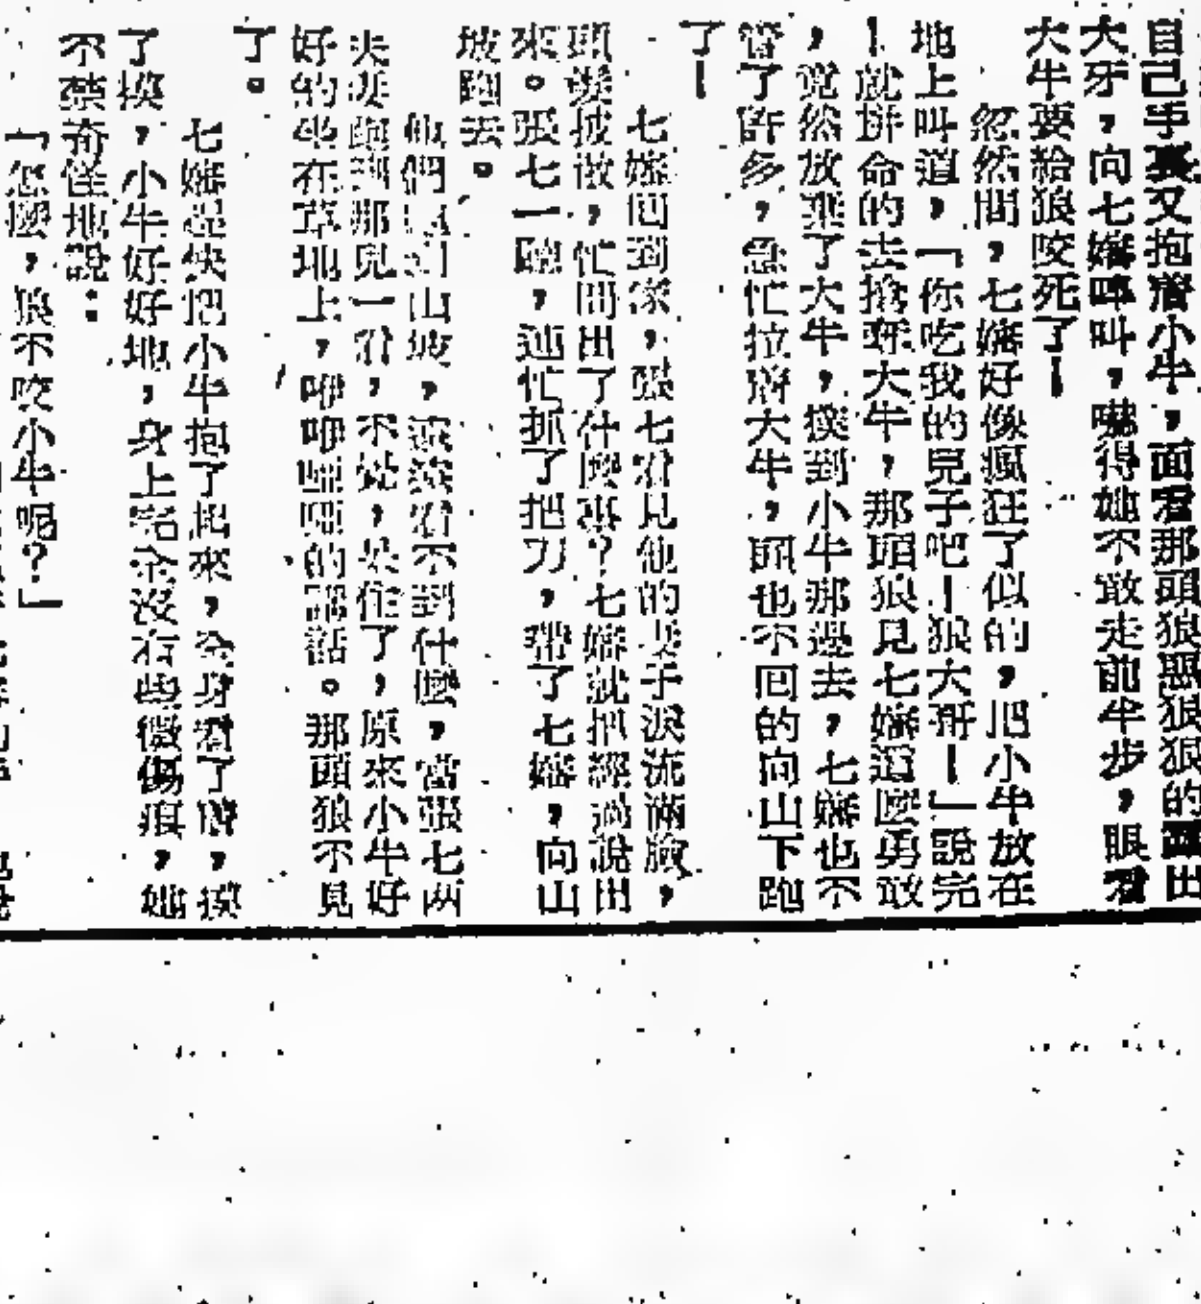 自己手裏又抱着小牛,面看那頭狼惡狠狠的露出
大牙,向七嬸嘷叫,嚇得她不敢走前半步,眼看
大牛要給狼咬死了!
忽然間,七嬸好像瘋狂了似的,把小牛放在
地上叫道,「你吃我的兒子吧!狼大哥!」說完
!就拼命的去搶奪大牛,那頭狼見七嬸這麼勇敢
,竟然放棄了大牛,撲到小牛那邊去,七嬸也不
管了許多,急忙拉着大牛,頭也不回的向山下跑
了!
七嬸回到家,張七看見他的妻子淚流滿臉,
頭髮披散,忙問出了什麼事?七嬸就把經過說出
來。張七一聽,連忙抓了把刀,帶了七嬸,向山
坡跑去。
他們 到山坡,遠遠看不到什麼,當張七兩
夫妻跑到那兒一看,不覺,呆住了,原來小牛好
好的坐在草地上,咿咿啞啞的講話。那頭狼不見
了。
七嬸趕快把小牛抱了起來,全身看了看,摸
了摸,小牛好好地,身上完全沒有些微傷痕,她
不禁奇怪地說:
「怎麼,狼不咬小牛呢?」